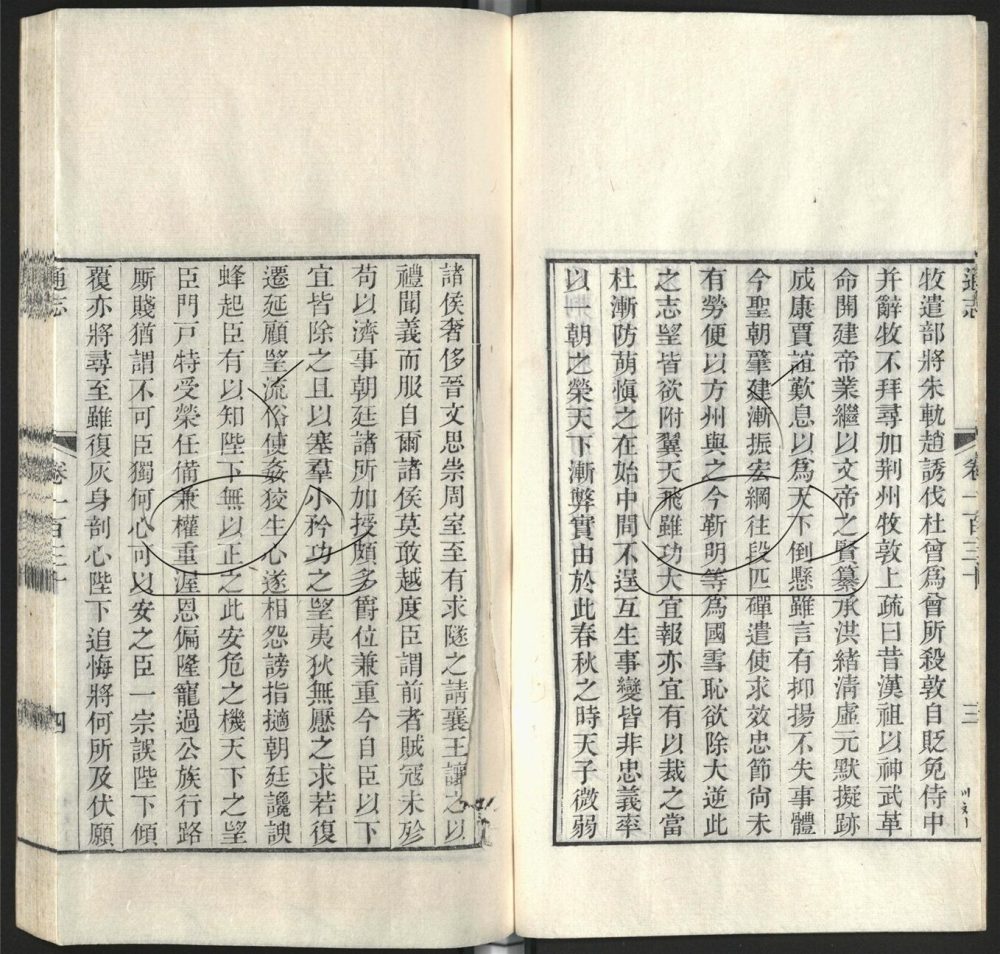 通志
卷一百三十
三
牧遣部將朱軌趙誘伐杜曾爲曾所殺敦自貶免侍中
并辭牧不拜尋加荆州牧敦上疏曰昔漢祖以神武革
命開建帝業繼以文帝之賢纂承洪緒清虛元默擬跡
成康賈誼歎息以爲天下倒懸雖言有抑揚不失事體
今聖朝肇建漸振宏綱往段匹磾遣使求效忠節尚未
有勞便以方州與之今靳明等爲國雪恥欲除大逆此
之志望皆欲附翼天飛雖功大宜報亦宜有以裁之當
杜漸防萌愼之在始中間不逞互生事變皆非忠義率
以一朝之榮天下漸弊實由於此春秋之時天子微弱
諸侯奢侈晉文思崇周室至有求隧之請襄王讓之以
禮聞義而服自爾諸侯莫敢越度臣謂前者賊寇未殄
苟以濟事朝廷諸所加授頗多爵位兼重今自臣以下
宜皆除之且以塞羣小矜功之望夷狄無厭之求若復
遷延顧望流俗使姦狡生心遂相怨謗指擿朝廷讒諛
蜂起臣有以知陛下無以正之此安危之機天下之望
臣門戸特受榮任備兼權重渥恩偏隆寵過公族行路
厮賤猶謂不可臣獨何心可以安之臣一宗誤陛下傾
覆亦將尋至雖復灰身剖心陛下追悔將何所及伏願
通志
卷一百三十
四